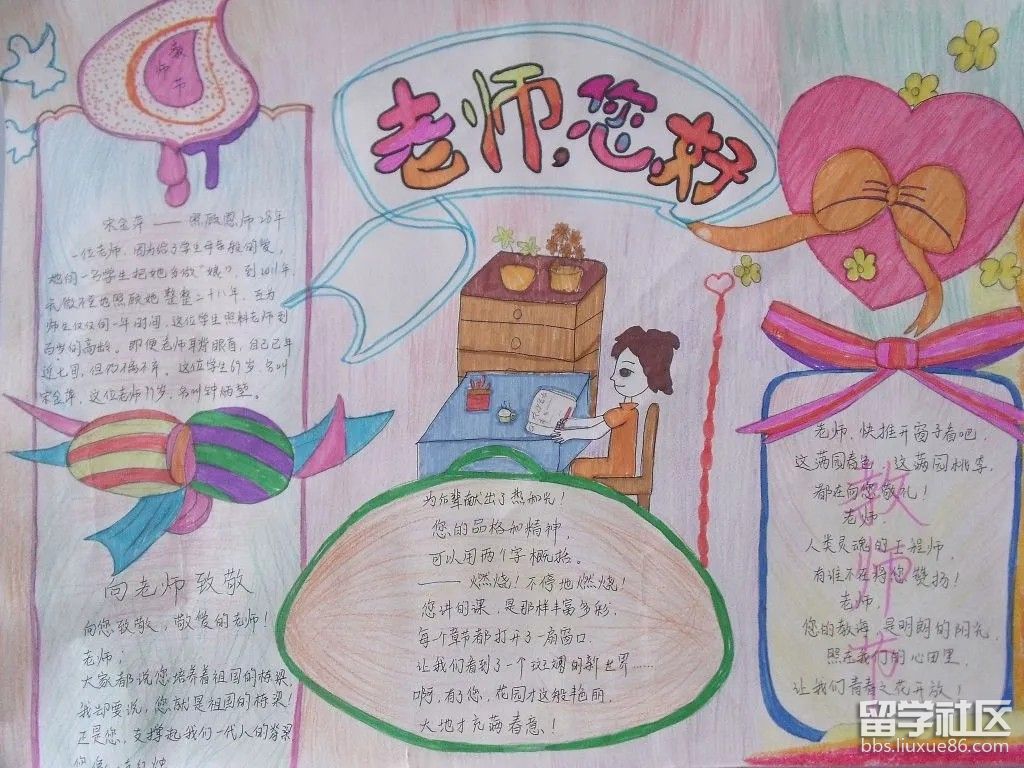 教师节
老师,您好
宋金萍——照顾恩师28年
一位老师,因为给了学生母亲般的爱,
她的一名学生把她当做"娘",到2011年,
无微不至地照顾她整整二十八年,互为
师生仅仅的一年时间,这位学生照料老师到
百岁的高龄。即便老师耳背眼盲,自己已年
近七旬,但仍不离不弃,这位学生67岁,名叫
宋金萍,这位老师
向老师致敬
向您致敬,敬爱的老师!
老师;
大家都说您培养着祖国的栋梁,
我却要说,您就是祖国的栋梁!
正是您,支撑起我们一代人的脊梁
为后辈献出了热和光!
您的品格和精神,
可以用两个字概括。
——燃烧!不停地燃烧!
您讲的课,是那样丰富多彩,
每个章节都打开了一扇窗口,
让我们看到了一个 的新世界……
啊,有了您,花园才这般艳丽,
大地才充满春意!
老师,快推开窗子看吧,
这满园春色,这满园桃李,
都在向您敬礼!
老师,
人类灵魂的工程师,
有谁不在将您赞扬!
老师,
您的教诲,是明朗的阳光,
照在我们的心田里,
让我们青春之花开放!
教师节
留学社区
bbs.liuxue86.com